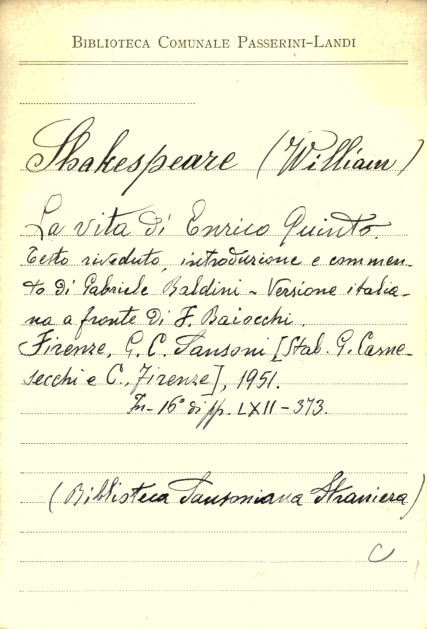 BIBLIOTECA COMUNALE PASSERINI-LANDI
Shakespeare (William)
La vita di Enrico Quinto.
Testo riveduto, introduzione e commen-
to di Gabriele Baldini - Versione italia-
na a fronte di F. Baiocchi.
Firenze, G. C. Sansoni [Stab. G. Carne-
secchi e C., Firenze], 1951.
In-16° di pp. LXII-373.
(Biblioteca Sansoniana Straniera)
C